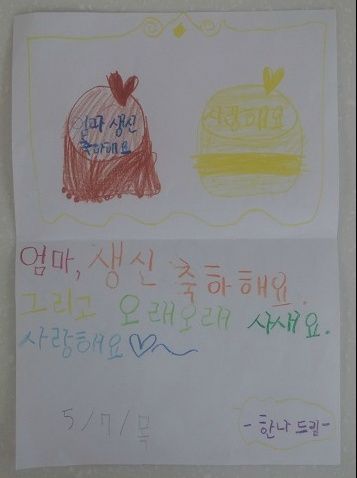 엄마 생신
축하해요
사랑해요
엄마, 생신 축하해요.
그리고 오래오래 사세요.
사랑해요♡~
5/7/목
-한나 드림-